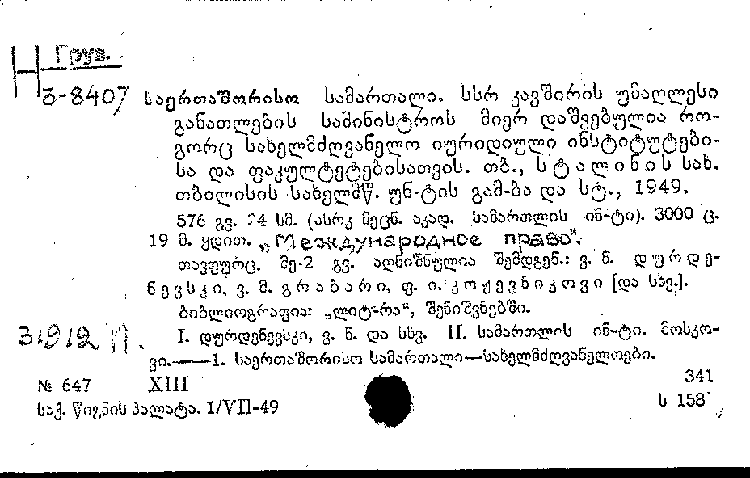 Груз.
З-8407 საერთაშორისო სამართალი. სსრ კავშირის უმაღლესი
განათლების სამინისტროს მიერ დაშვებულია რო-
გორც სახელმძღვანელო იურიდიული ინსტიტუტები-
სა და ფაკულტეტებისათვის. თბ., სტალინის სახ.
თბილისის სახელმწ. უნ-ტის გამ-ბა და სტ., 1949.
576 გვ. 24 სმ. (ასრკ მეცნ. აკად. სამართლის ინ-ტი). 3000 ც.
19 მ. ყდით. „Международное право".
თავფურც. მე-2 გვ. აღნიშნულია შემდგენ.: ვ. ნ. დურდე-
ნევსკი, ვ. ე. გრაბარი, ფ. ი. კოჟევნიკოვი [და სხვ.].
ბიბლიოგრაფია: „ლიტ-რა", შენიშვნებში.
31912 П. I. დურდენევსკი, ვ. ნ. და სხვ. II. სამართლის ინ-ტი. მოსკო-
ვი.——1. საერთაშორისო სამართალი—სახელმძღვანელოები.
№ 647 XIII 341
საქ. წიგნის პალატა. 1/VII-49 ს 158